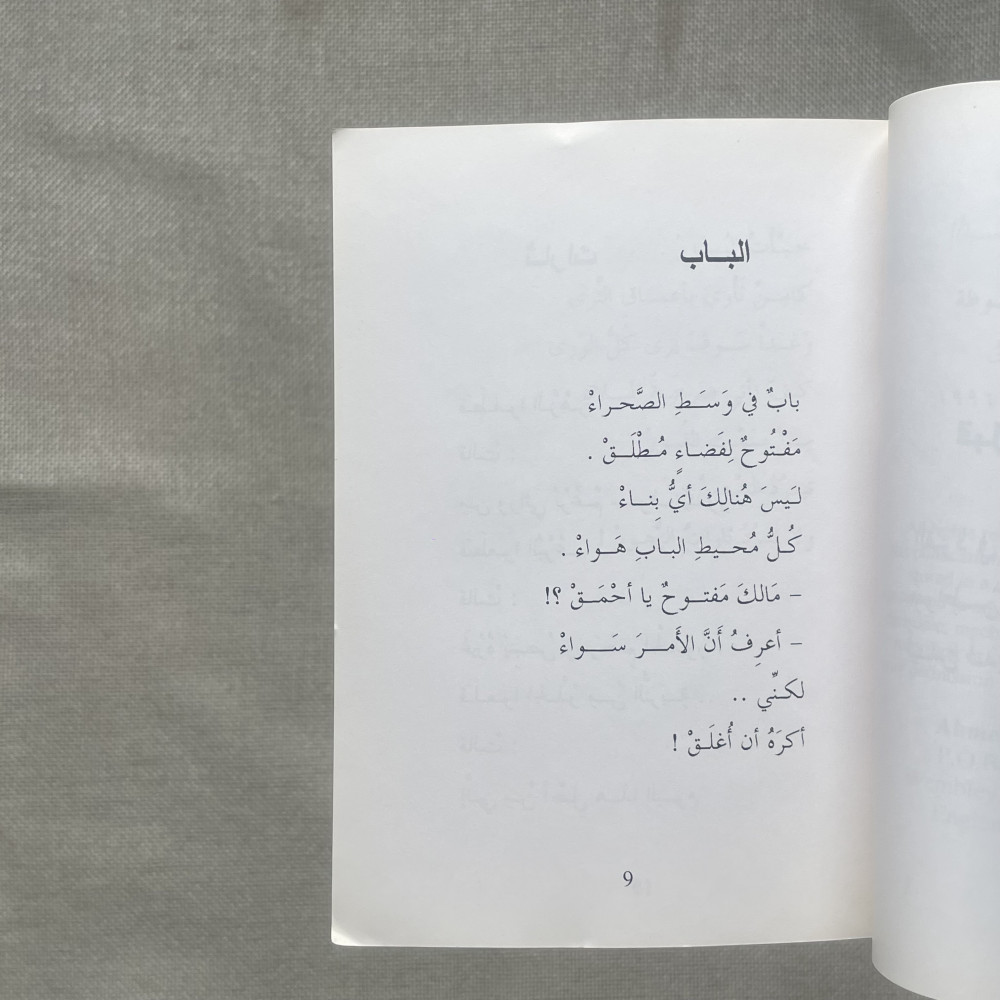 البــاب
بابٌ في وَسَـطِ الصَّحـراءْ
مَفْـتُوحٌ لِفَضـاءٍ مُـطْلَـقْ .
لَـيسَ هُنالِكَ أيُّ بِنـاءْ
كُـلُّ مُحـيطِ البـابِ هَـواءْ .
– مَالكَ مَفتـوحٌ يا أحْمَـقْ ؟!
– أعرِفُ أَنَّ الأَمـرَ سَــواءْ
لكـنِّي ..
أكرَهُ أن أُغلَـقْ !
9